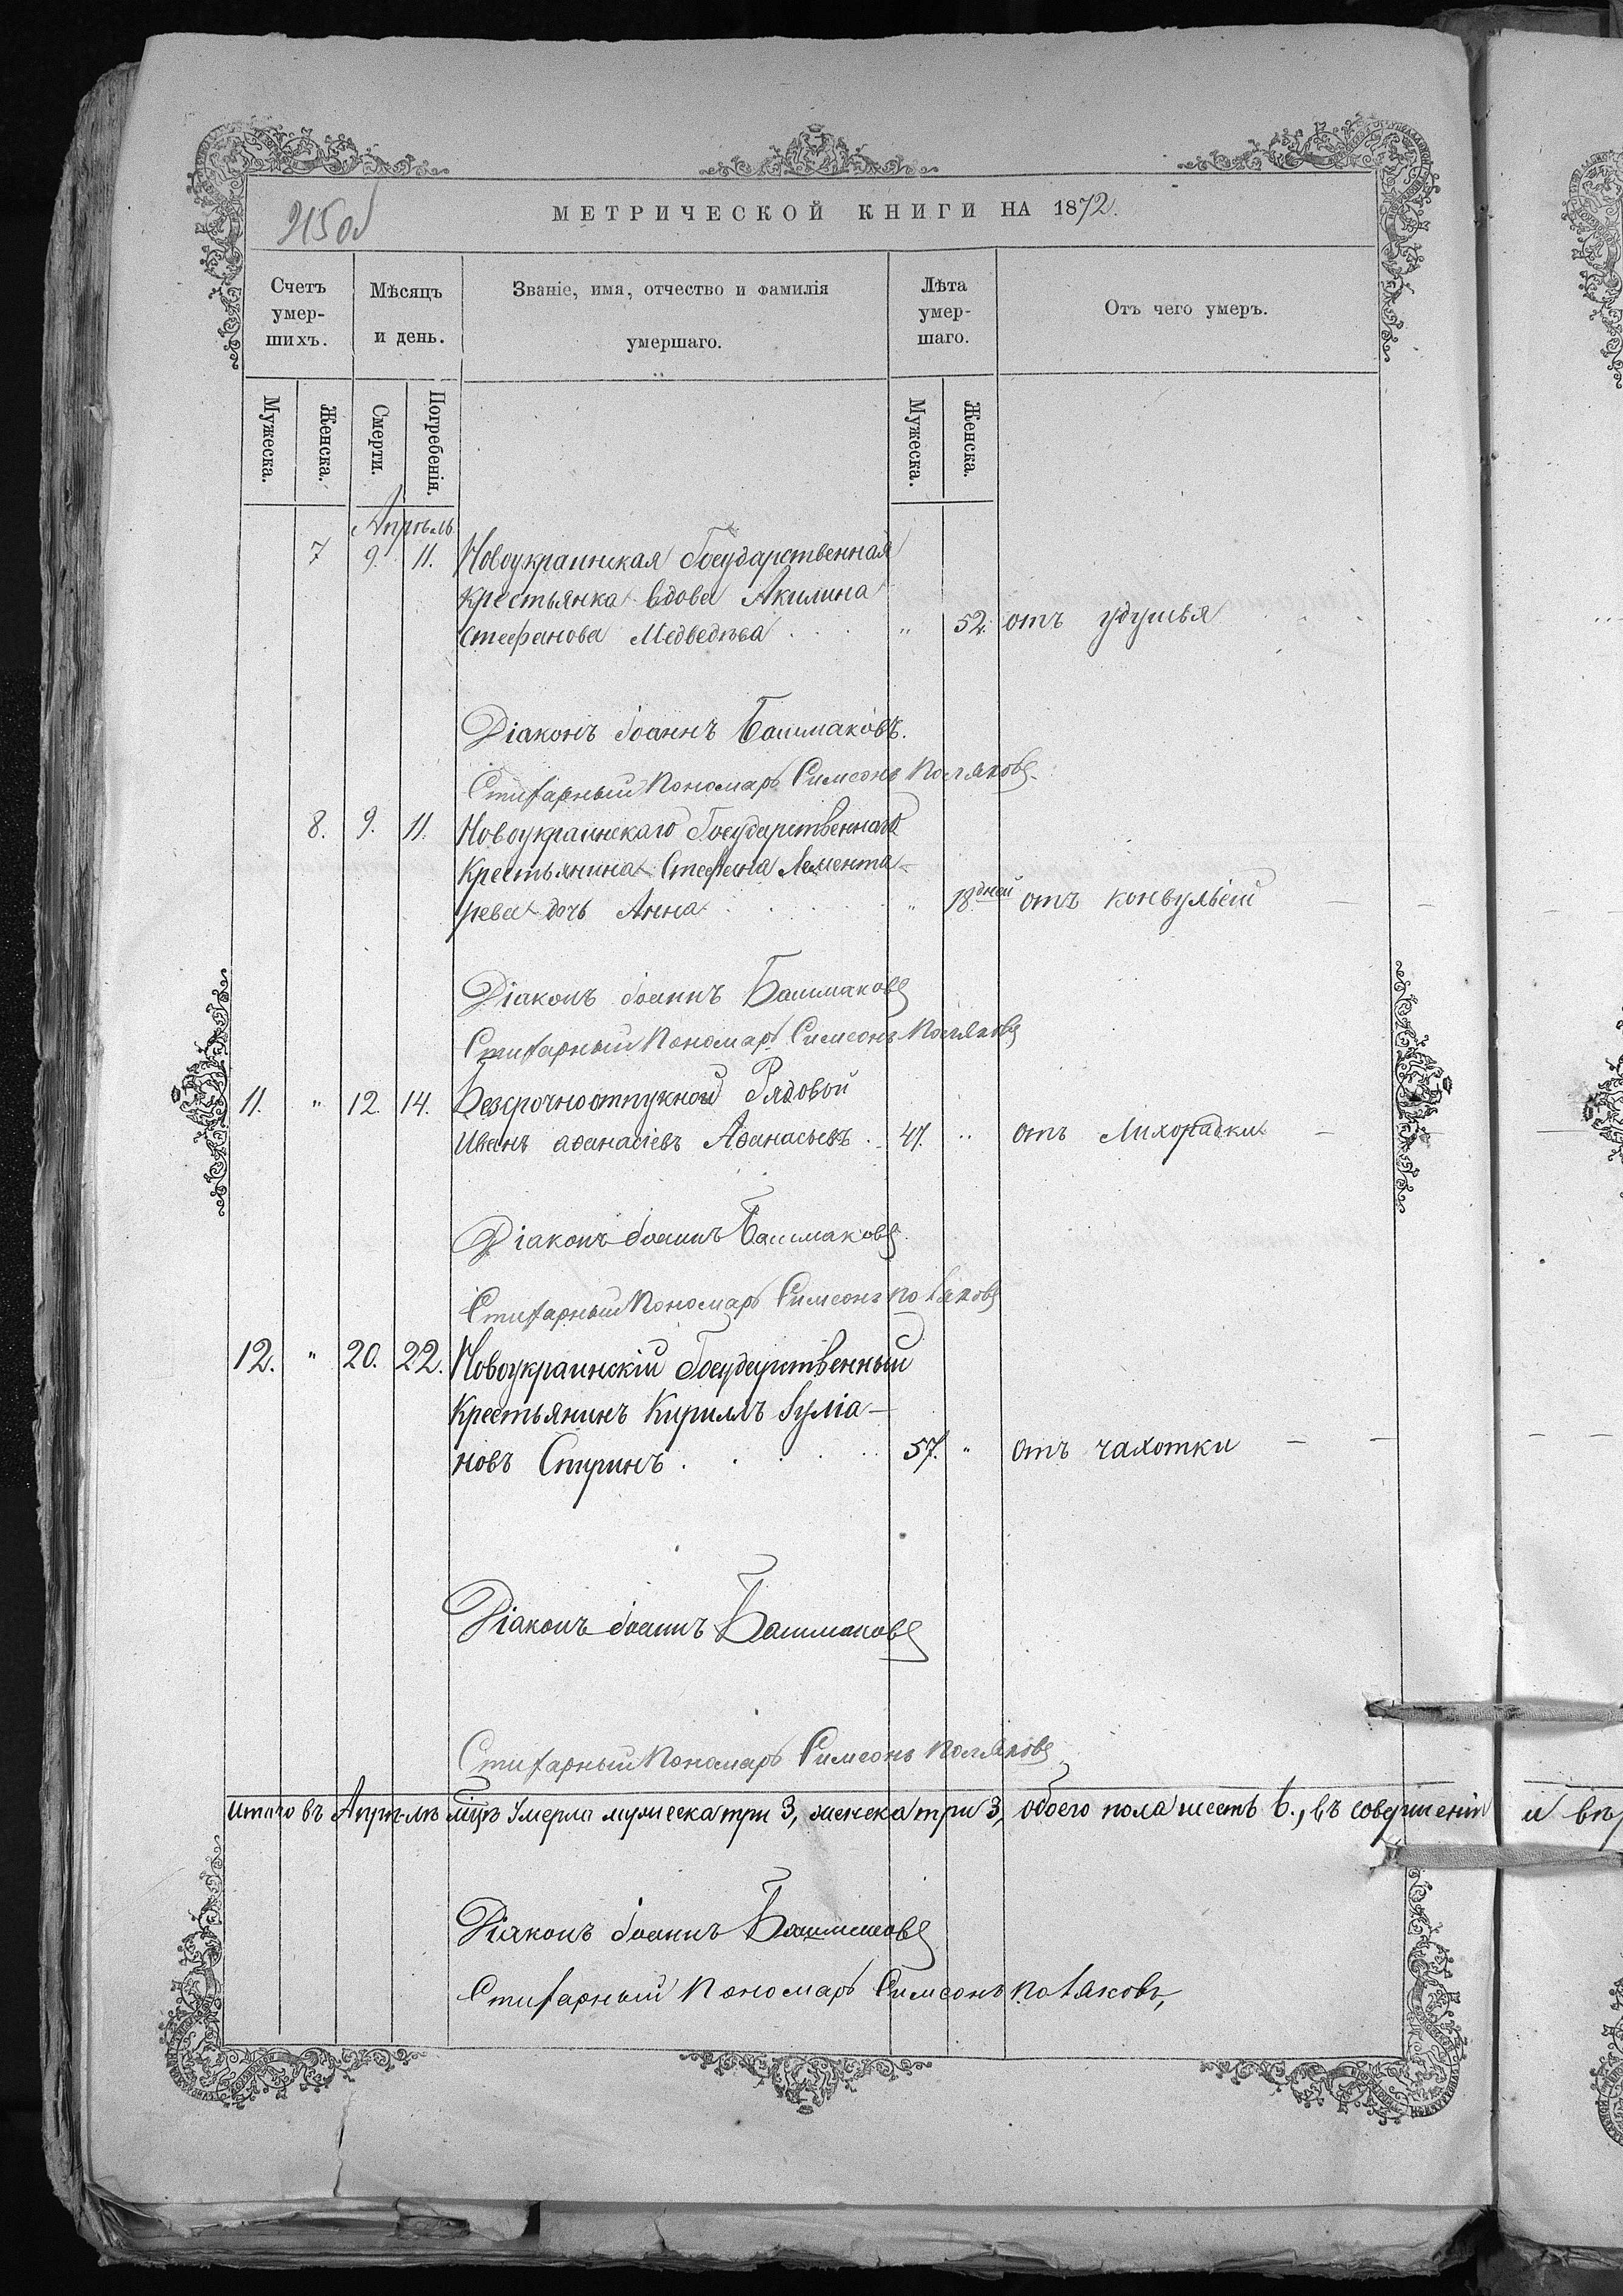 215 об
МЕТРИЧЕСКОЙ КНИГИ НА 1872.
Счетъ умер- шихъ.
Мѣсяцъ и день.
Званіе, имя, отчество и фамилія умершаго.
Лѣта умер- шаго.
Отъ чего умеръ.
Мужеска. Женска. Смерти. Погребенія. Мужеска. Женска.
Апрѣль
7 9. 11. Новоукраинская Государственная
крестьянка вдова Акилина
Стефанова Медведѣва . . . „ 52. отъ удушья
Діаконъ Іоаннъ Башмаковъ.
Стихарный Пономарь Симеонъ Поляковъ
8. 9. 11. Новоукраинскаго Государственнаго
Крестьянина Стефана Лемента-
рева дочь Анна . . . . „ 18 дней отъ конвульсій
Діаконъ Іоаннъ Башмаковъ
Стихарный Пономарь Симеонъ Поляковъ
11. „ 12. 14. Безсрочноотпускной Рядовой
Иванъ Аѳанасіевъ Аѳанасьевъ . 47. „ отъ Лихорадки
Діаконъ Іоаннъ Башмаковъ
Стихарный Пономарь Симеонъ Поляковъ
12. „ 20. 22. Новоукраинскій Государственный
Крестьянинъ Кириллъ Іуліа-
новъ . . . . . 57. „ отъ чахотки
Діаконъ Іоаннъ Башмаковъ
Стихарный Пономарь Симеонъ Поляковъ
Итого въ Апрѣлѣ мцѣ Умерло мужеска три 3, женска три 3, обоего пола шесть 6., въ совершеніи и вѣр
Діаконъ Іоаннъ Башмаковъ
Стихарный Пономарь Симеонъ Поляковъ,